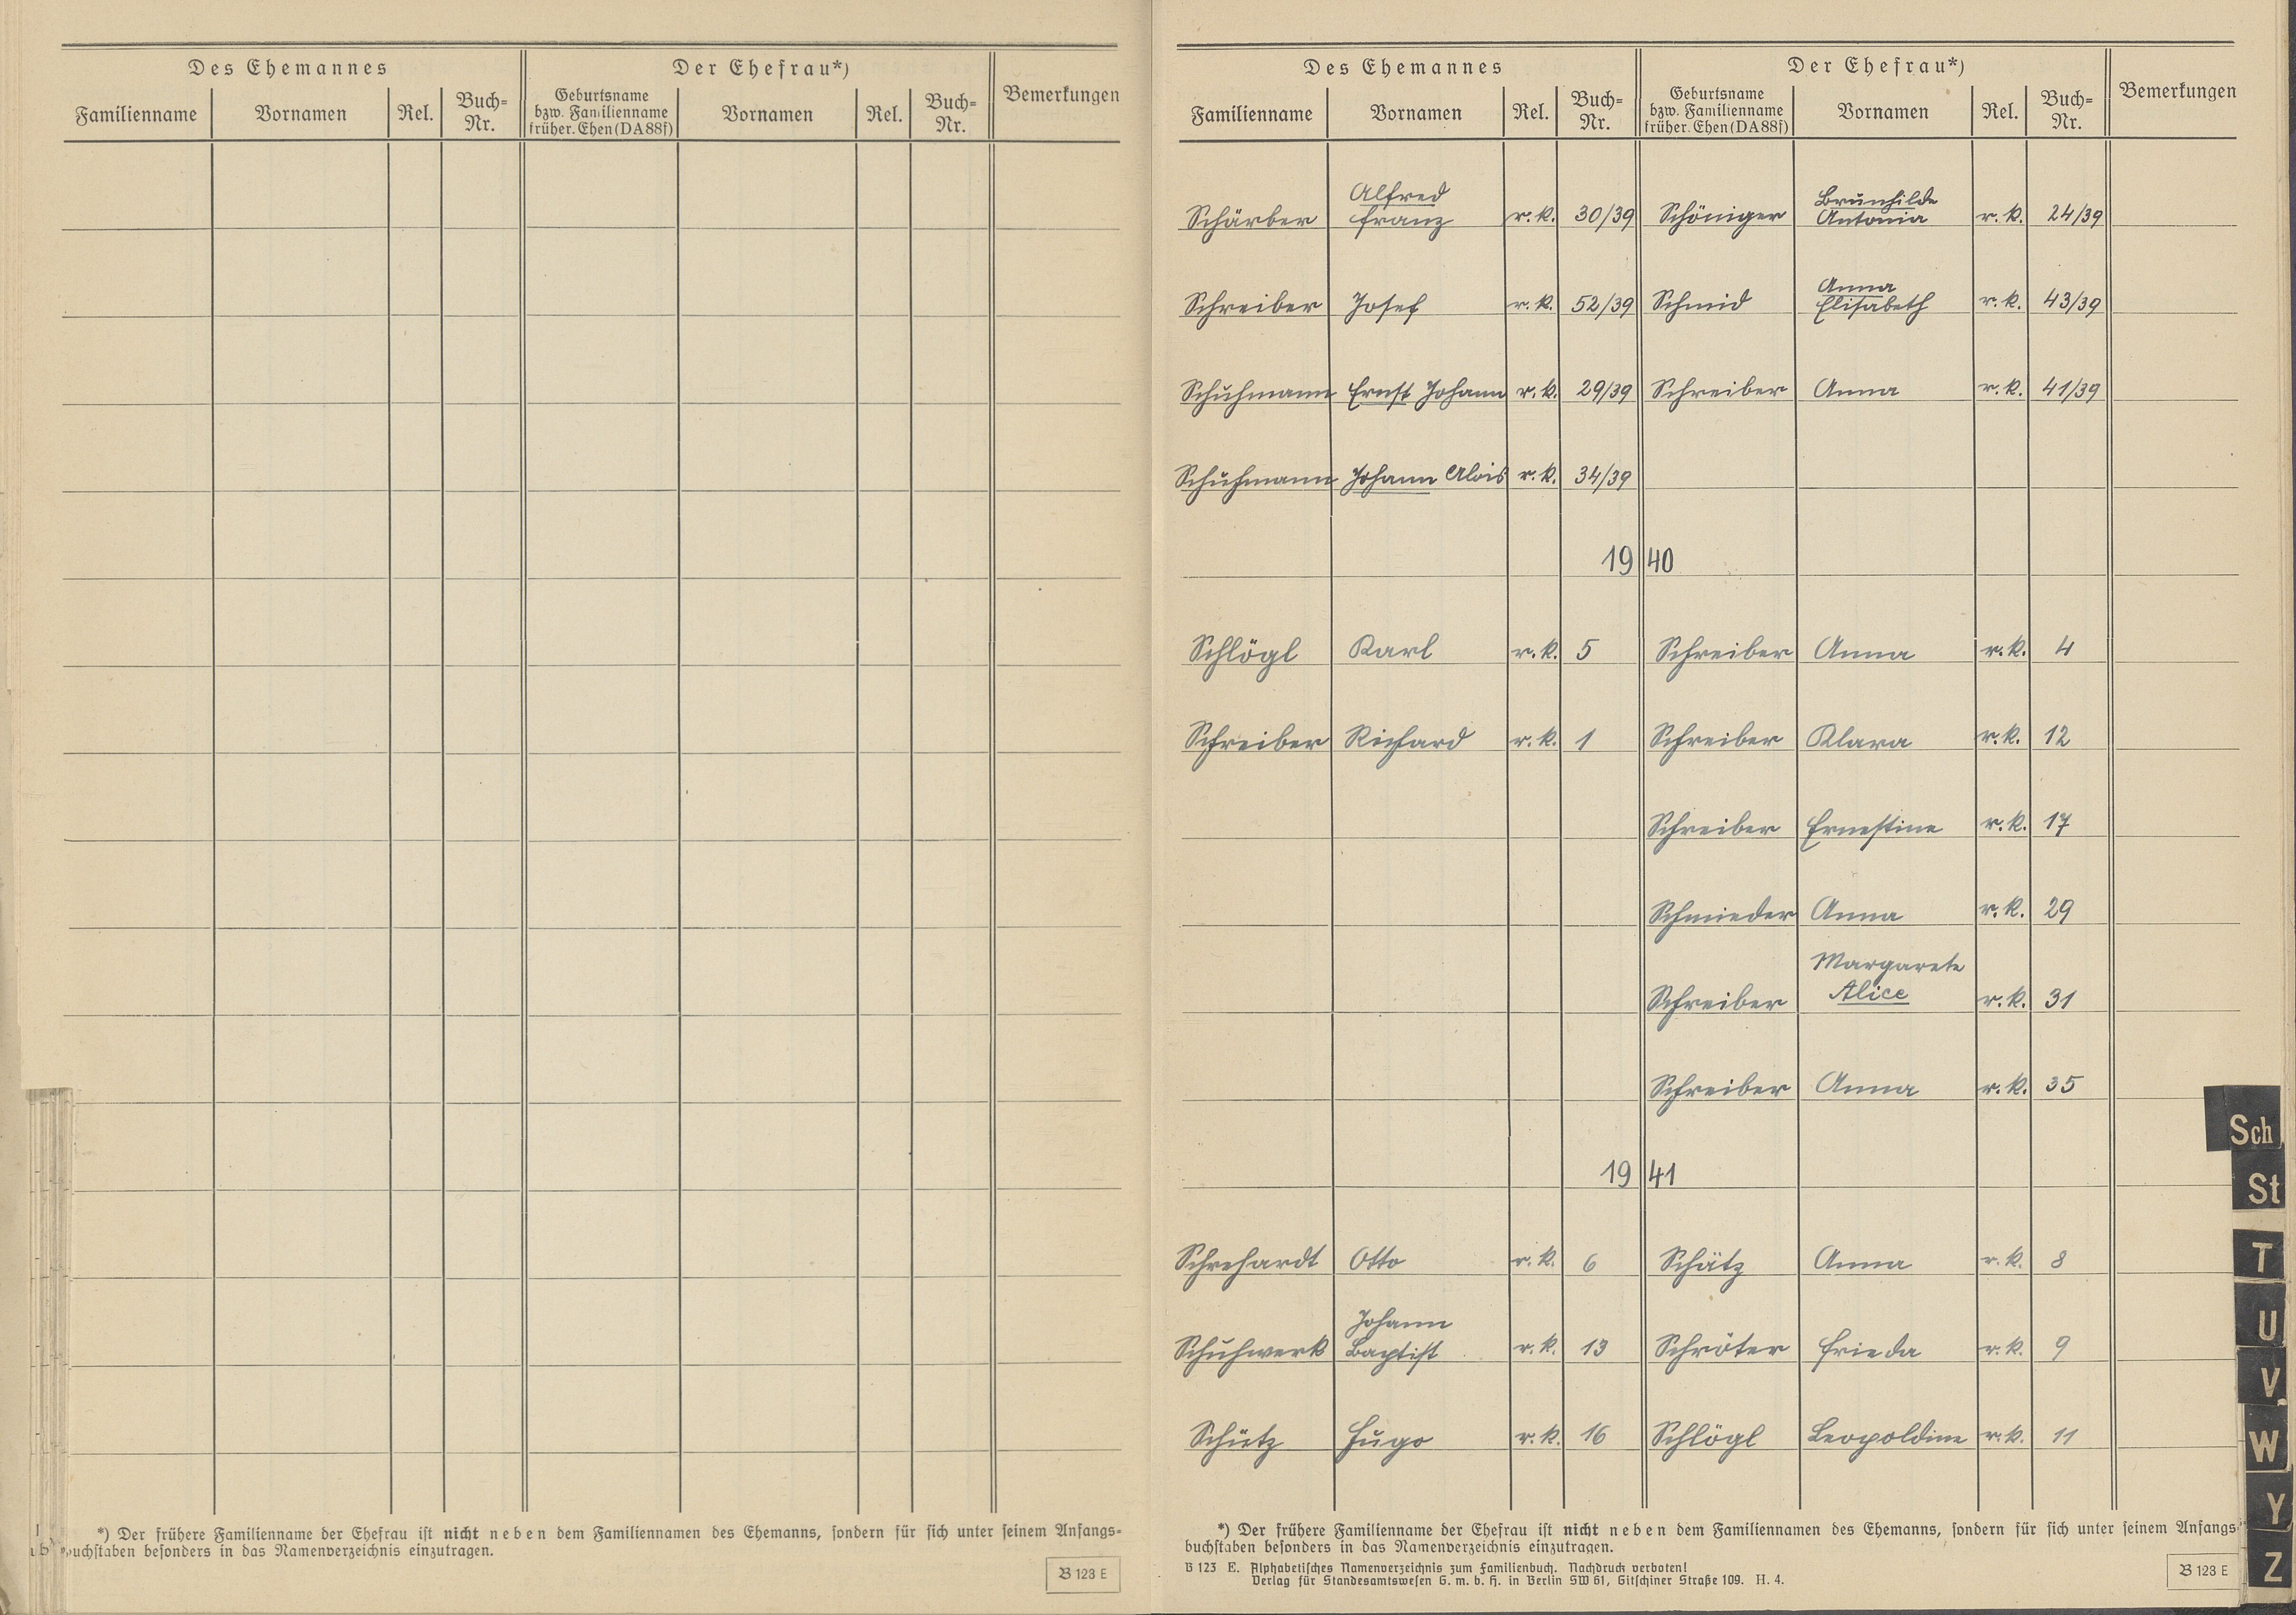 Des Ehemannes Der Ehefrau*) Bemerkungen
Familienname Vornamen Rel. Buch=Nr. Geburtsname bzw. Familienname früher. Ehen (DA 88f) Vornamen Rel. Buch=Nr.
*) Der frühere Familienname der Ehefrau ist nicht neben dem Familiennamen des Ehemanns, sondern für sich unter seinem Anfangs=
buchstaben besonders in das Namenverzeichnis einzutragen.
B 123 E
Des Ehemannes Der Ehefrau*) Bemerkungen
Familienname Vornamen Rel. Buch=Nr. Geburtsname bzw. Familienname früher. Ehen (DA 88f) Vornamen Rel. Buch=Nr.
Schärber Alfred Franz r. k. 30/39 Schöniger Brunhilde Antonia r. k. 24/39
Schreiber Josef r. k. 52/39 Schmid Anna Elisabeth r. k. 43/39
Schuhmann Ernst Johann r. k. 29/39 Schreiber Anna r. k. 41/39
Schuhmann Johann Alois r. k. 34/39
19 40
Schlögl Karl r. k. 5 Schreiber Anna r. k. 4
Schreiber Richard r. k. 1 Schreiber Klara r. k. 12
Schreiber Ernestine r. k. 17
Schmieder Anna r. k. 29
Schreiber Margarete Alice r. k. 31
Schreiber Anna r. k. 35
19 41
Schrehardt Otto r. k. 6 Schätz Anna r. k. 8
Schuhwerk Johann Baptist r. k. 13 Schröter Frieda r. k. 9
Schütz Hugo r. k. 16 Schlögl Leopoldine r. k. 11
*) Der frühere Familienname der Ehefrau ist nicht neben dem Familiennamen des Ehemanns, sondern für sich unter seinem Anfangs=
buchstaben besonders in das Namenverzeichnis einzutragen.
B 123 E. Alphabetisches Namenverzeichnis zum Familienbuch. Nachdruck verboten!
Verlag für Standesamtswesen G. m. b. H. in Berlin SW 61, Gitschiner Straße 109. H. 4.
B 123 E
Sch
St
T
U
V
W
Y
Z